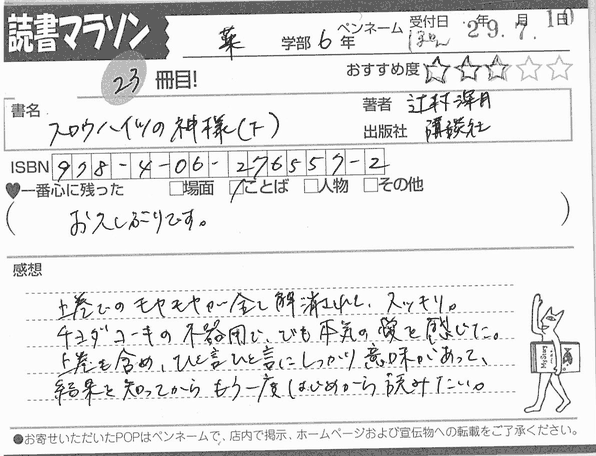 読書マラソン
薬 学部 6 年 ペンネーム ぽん 受付日 年 29.7.10 月 日
23 冊目!
おすすめ度 ☆☆☆☆☆
書名 スロウハイツの神様(下)
著者 辻村深月
出版社 講談社
ISBN 978-4-06-276557-2
♥一番心に残った □場面 ☑ことば □人物 □その他
( お久しぶりです。 )
感想
上巻でのモヤモヤが全て解消されて、スッキリ。
チヨダコーキの不器用で、でも本気の愛を感じた。
上巻も含め、ひと言ひと言にしっかり意味があって、
結果を知ってからもう一度はじめから読みたい。
●お寄せいただいたPOPはペンネームで、店内で掲示、ホームページおよび宣伝物への転載をご了承ください。